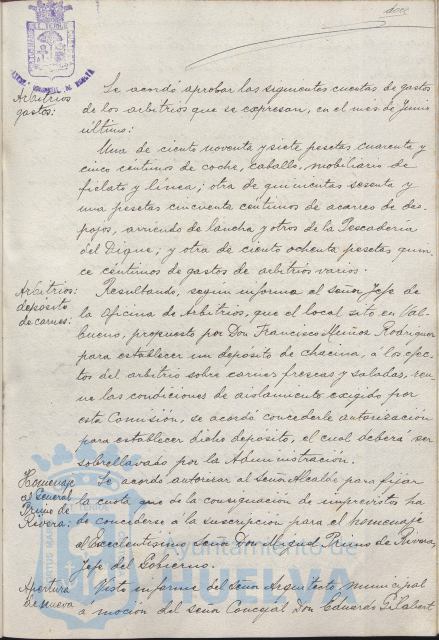 doce
Arbitrios
gastos:
Se acordó aprobar las siguientes cuentas de gastos
de los arbitrios que se expresan, en el mes de Junio
último:
Una de ciento noventa y siete pesetas cuarenta y
cinco céntimos de coche, caballo, mobiliario de
fielato y línea; otra de quinientas sesenta y
una pesetas cincuenta céntimos de acarreo de des-
pojos, arriendo de lancha y otros de la Pescadería
del Dique; y otra de ciento ochenta pesetas quin-
ce céntimos de gastos de arbitrios varios.
Arbitrios:
depósito
de carnes:
Resultando, según informa el señor Jefe de
la Oficina de Arbitrios, que el local sito en Val-
bueno, propuesto por Don Francisco Muñoz Rodriguez
para establecer un depósito de chacina, á los efec-
tos del arbitrio sobre carnes frescas y saladas, reu-
ne las condiciones de aislamiento exigido por
esta Comisión, se acordó concederle autorización
para establecer dicho depósito, el cual deberá ser
sobrellavado por la Administración.
Homenaje
al General
Primo de
Rivera:
Se acordó autorizar al señor Alcalde para fijar
la cuota que de la consignación de imprevistos ha
de concederse á la suscripción para el homenaje
al Excelentísimo Señor Don Miguel Primo de Rivera,
Jefe del Gobierno.
Apertura
de nueva
Visto informe del señor Arquitecto municipal
á moción del señor Concejal Don Eduardo Gilabert
Ayuntamiento de
HUELVA